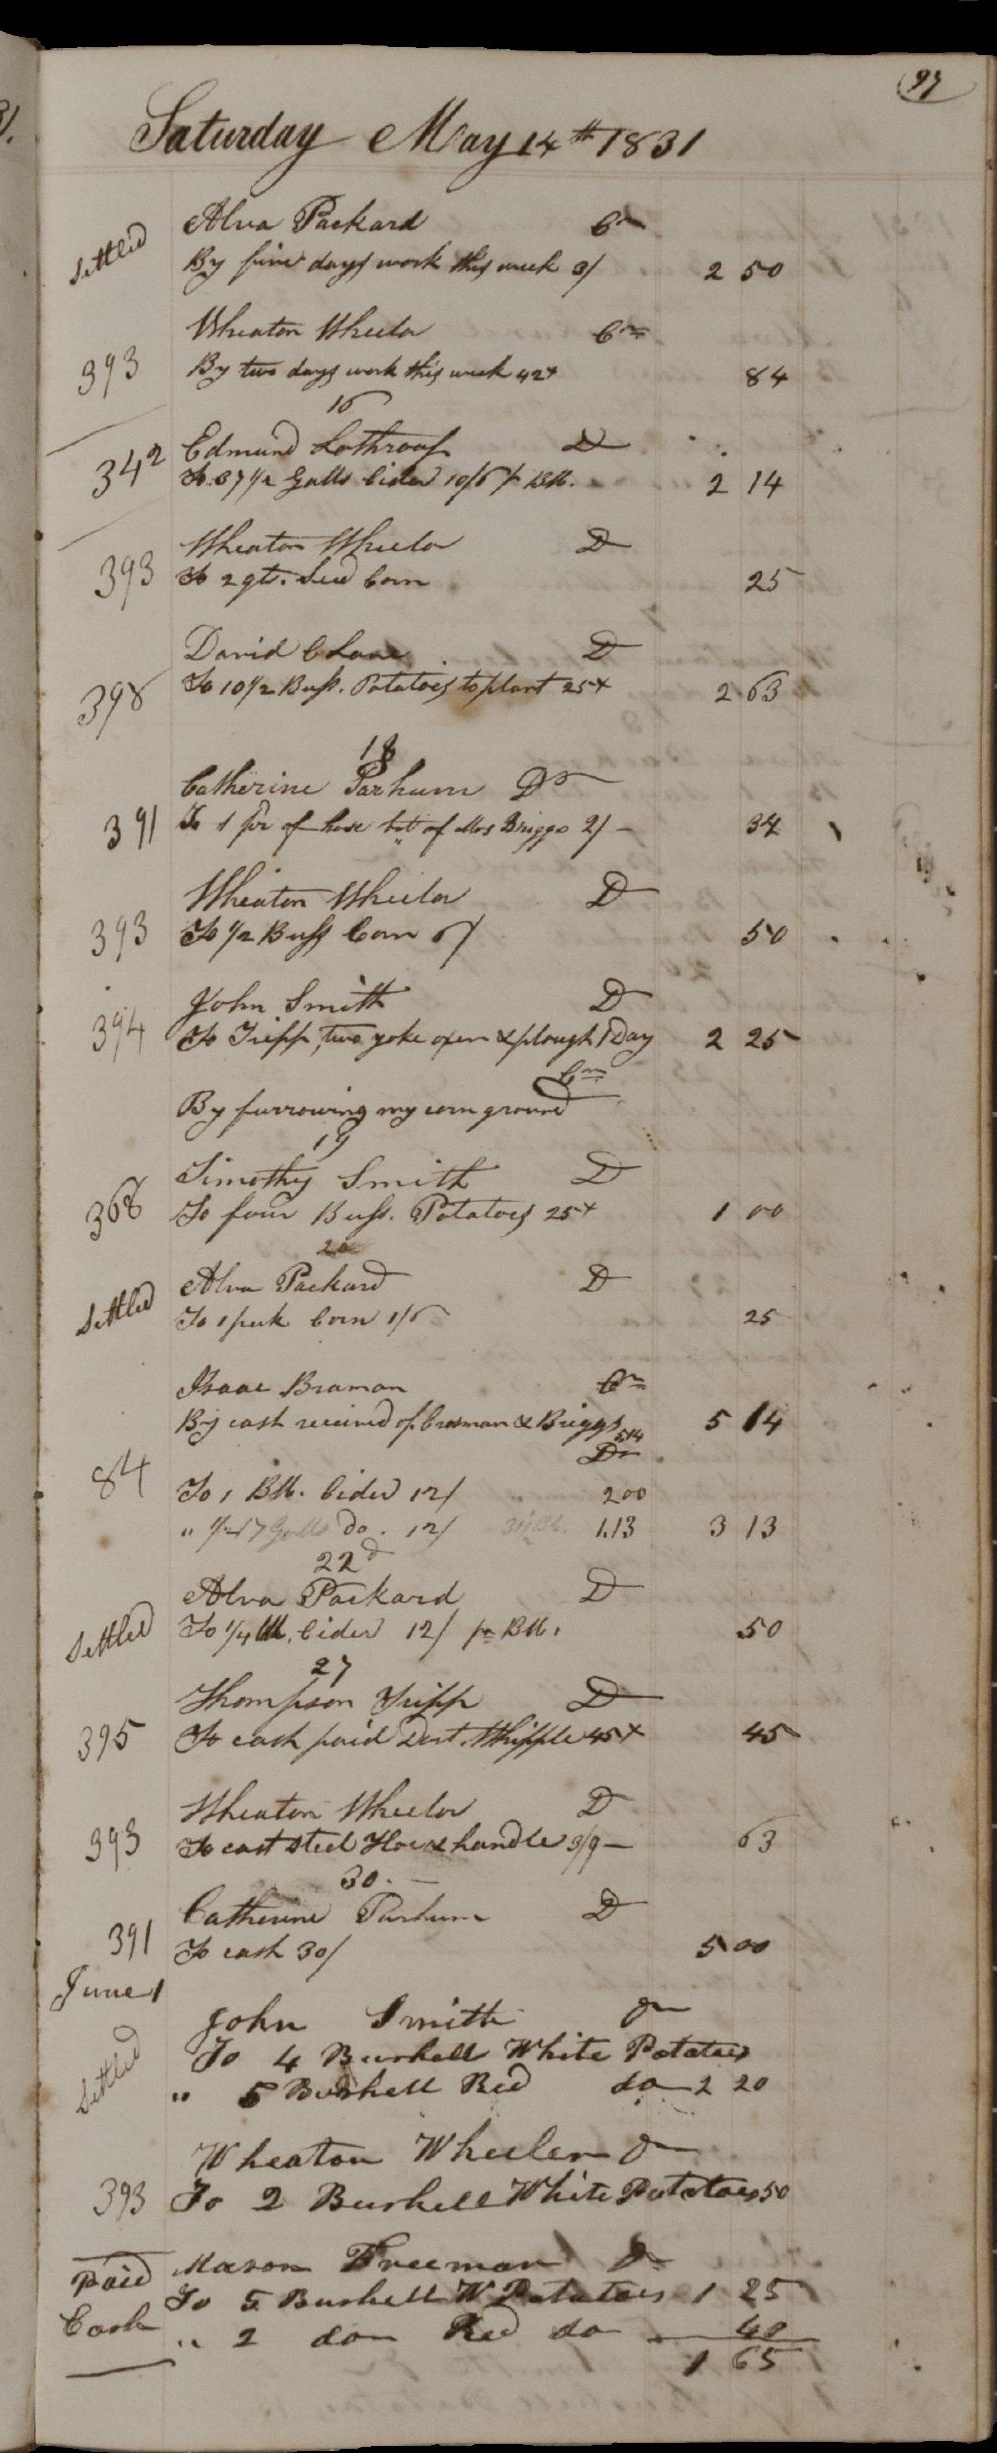 97
Saturday May 14th 1831
Settled Alva Packard Cr
By five days work this week 3/ 2 50
Wheaton Wheeler Cr
393 By two days work this week 42+ 84
16
Edmund Lothrop D
342 To 37 1/2 Galls Cider 10/6 pr Bbl. 2 14
Wheaton Wheeler D
393 To 2 qts. Seed Corn 25
David C Lane D
398 To 10 1/2 Bush. Potatoes to plant 25+ 2 63
18
Catherine Parkum Dr
391 To 1 pr of hose bot of Mrs Briggs 2/ – 34
Wheaton Wheeler D
393 To 1/2 Bush Corn 6/ 50
John Smith D
394 To Tripp, two yoke oxen & plough 1 Day 2 25
Cr
By furrowing my corn ground
19
Timothy Smith D
368 To four Bush. Potatoes 25+ 1 00
20
Alva Packard D
Settled To 1 peck Corn 1/6 25
Isaac Braman Cr
By cash received of Braman & Briggs 5 14
5.14
Dr
84 To 1 Bbl. Cider 12/ 2 00
" 17 Galls Do. 12/ 1.13 3 13
22d
Alva Packard D
Settled To 1/4 Bbl. Cider 12/ pr Bbl. 50
27
Thompson Tripp D
395 To cash paid Doct. Whipple 45+ 45
Wheaton Wheeler D
393 To cast steel Hoe & handle 3/9 – 63
30. –
Catherine Parkum D
391 To cash 30/ 5 00
June 1
John Smith Dr
Settled To 4 Bushell White Potatoes
" 5 Bushell Red do 2 20
Wheaton Wheeler Dr
393 To 2 Bushell White Potatoes 50
Paid Mason Freeman Dr
Cash To 5 Bushell W Potatoes 1 25
" 2 do Red do 40
1 65